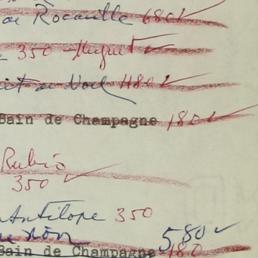 Rocaille 680 ✓
350 Muguet ✓
Noel 480 ✓
Bain de Champagne 180 ✓
Rubio
350 ✓
Antilope 350
580 ✓
Bain de Champagne 180